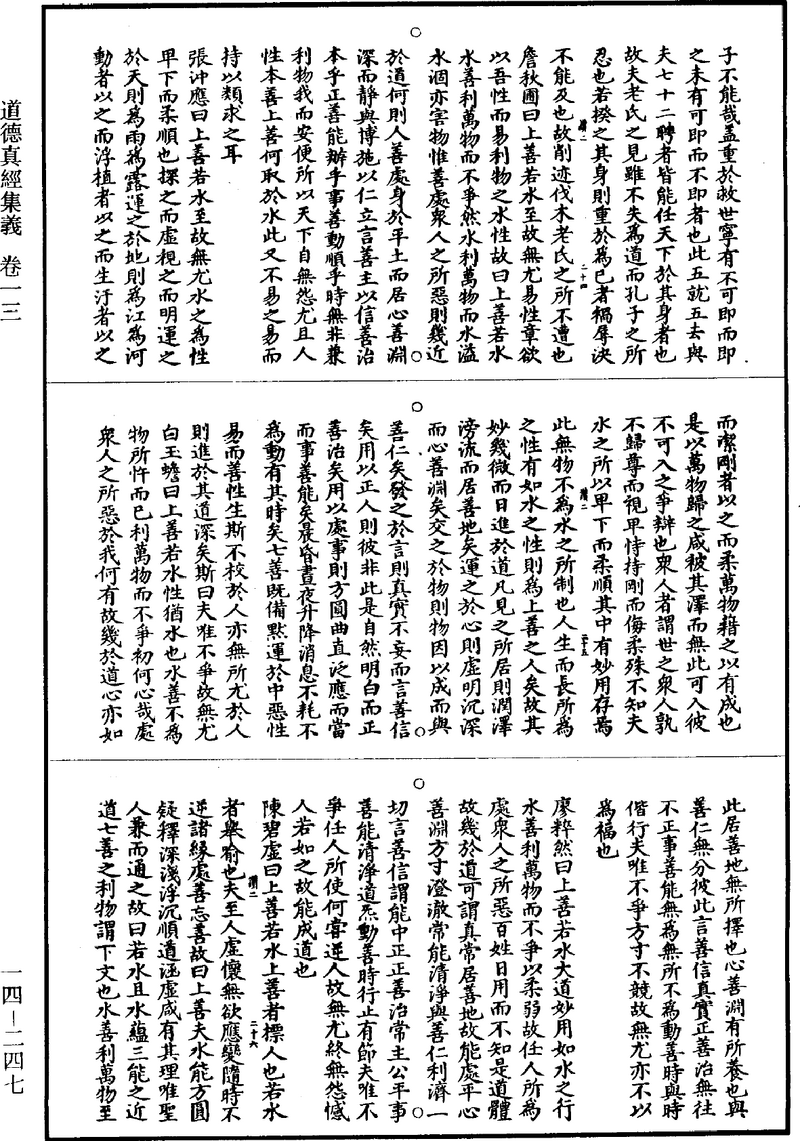 道德真經集義 卷一三
一四—二四七
子不能哉蓋重於救世寧有不可即而即
之未有可即而不即者也此五就五去與
夫七十二聘者皆能任天下於其身者也
故夫老氏之見雖不失為道而孔子之所
忍也若揆之其身則重於為已者禍辱決
不能及也故削迹伐木老氏之所不遭也
詹秋圃曰上善若水至故無尤易性章欲
以吾性而易利物之水性故曰上善若水
水善利萬物而不爭然水利萬物而水溢
水涸亦害物惟善處衆人之所惡則幾近
於道何則人善處身於平土而居心善淵
深而靜與博施以仁立言善主以信善治
本乎正善能辦乎事善動順乎時無非兼
利物我而安便所以天下自無怨尤且人
性本善上善何取於水此又不易之易而
持以類求之耳
張沖應曰上善若水至故無尤水之為性
卑下而柔順也探之而虛視之而明運之
於天則為雨為露運之於地則為江為河
動者以之而浮植者以之而生汙者以之
而潔剛者以之而柔萬物藉之以有成也
是以萬物歸之咸被其澤而無此可入彼
不可入之爭辯也衆人者謂世之衆人孰
不歸尊而視卑恃持剛而侮柔殊不知夫
水之所以卑下而柔順其中有妙用存焉
此無物不為水之所制也人生而長所為
之性有如水之性則為上善之人矣故其
妙幾微而日進於道凡見之所居則潤澤
滂流而居善地矣運之於心則虛明沉深
而心善淵矣交之於物則物因以成而與
善仁矣發之於言則真實不妄而言善信
矣用以正人則彼非此是自然明白而正
善治矣用以處事則方圓曲直泛應而當
而事善能矣晨昏晝夜升降消息不耗不
為動有其時矣七善既備默運於中惡性
易而善性生斯不校於人亦無所尤於人
則進於其道深矣斯曰夫唯不爭故無尤
白玉蟾曰上善若水性猶水也水善不為
物所忤而已利萬物而不爭初何心哉處
衆人之所惡於我何有故幾於道心亦如
此居善地無所擇也心善淵有所養也與
善仁無分彼此言善信真實正善治無往
不正事善能無為無所不為動善時與時
偕行夫唯不爭方寸不競故無尤亦不以
為福也
廖粹然曰上善若水大道妙用如水之行
水善利萬物而不爭以柔弱故任人所為
處衆人之所惡百姓日用而不知是道體
故幾於道可謂真常居善地故能處平心
善淵方寸澄澈常能清淨與善仁利濟一
切言善信謂能中正正善治常主公平事
善能清淨道炁動善時行止有節夫唯不
爭任人所使何嘗逆人故無尤終無怨憾
人若如之故能成道也
陳碧虛曰上善若水上善者標人也若水
者舉喻也夫至人虛懷無欲應變隨時不
逆諸緣處善忘善故曰上善夫水能方圓
疑釋深淺浮沉順遺涵虛咸有其理唯聖
人兼而通之故曰若水且水蘊三能之近
道七善之利物謂下文也水善利萬物至